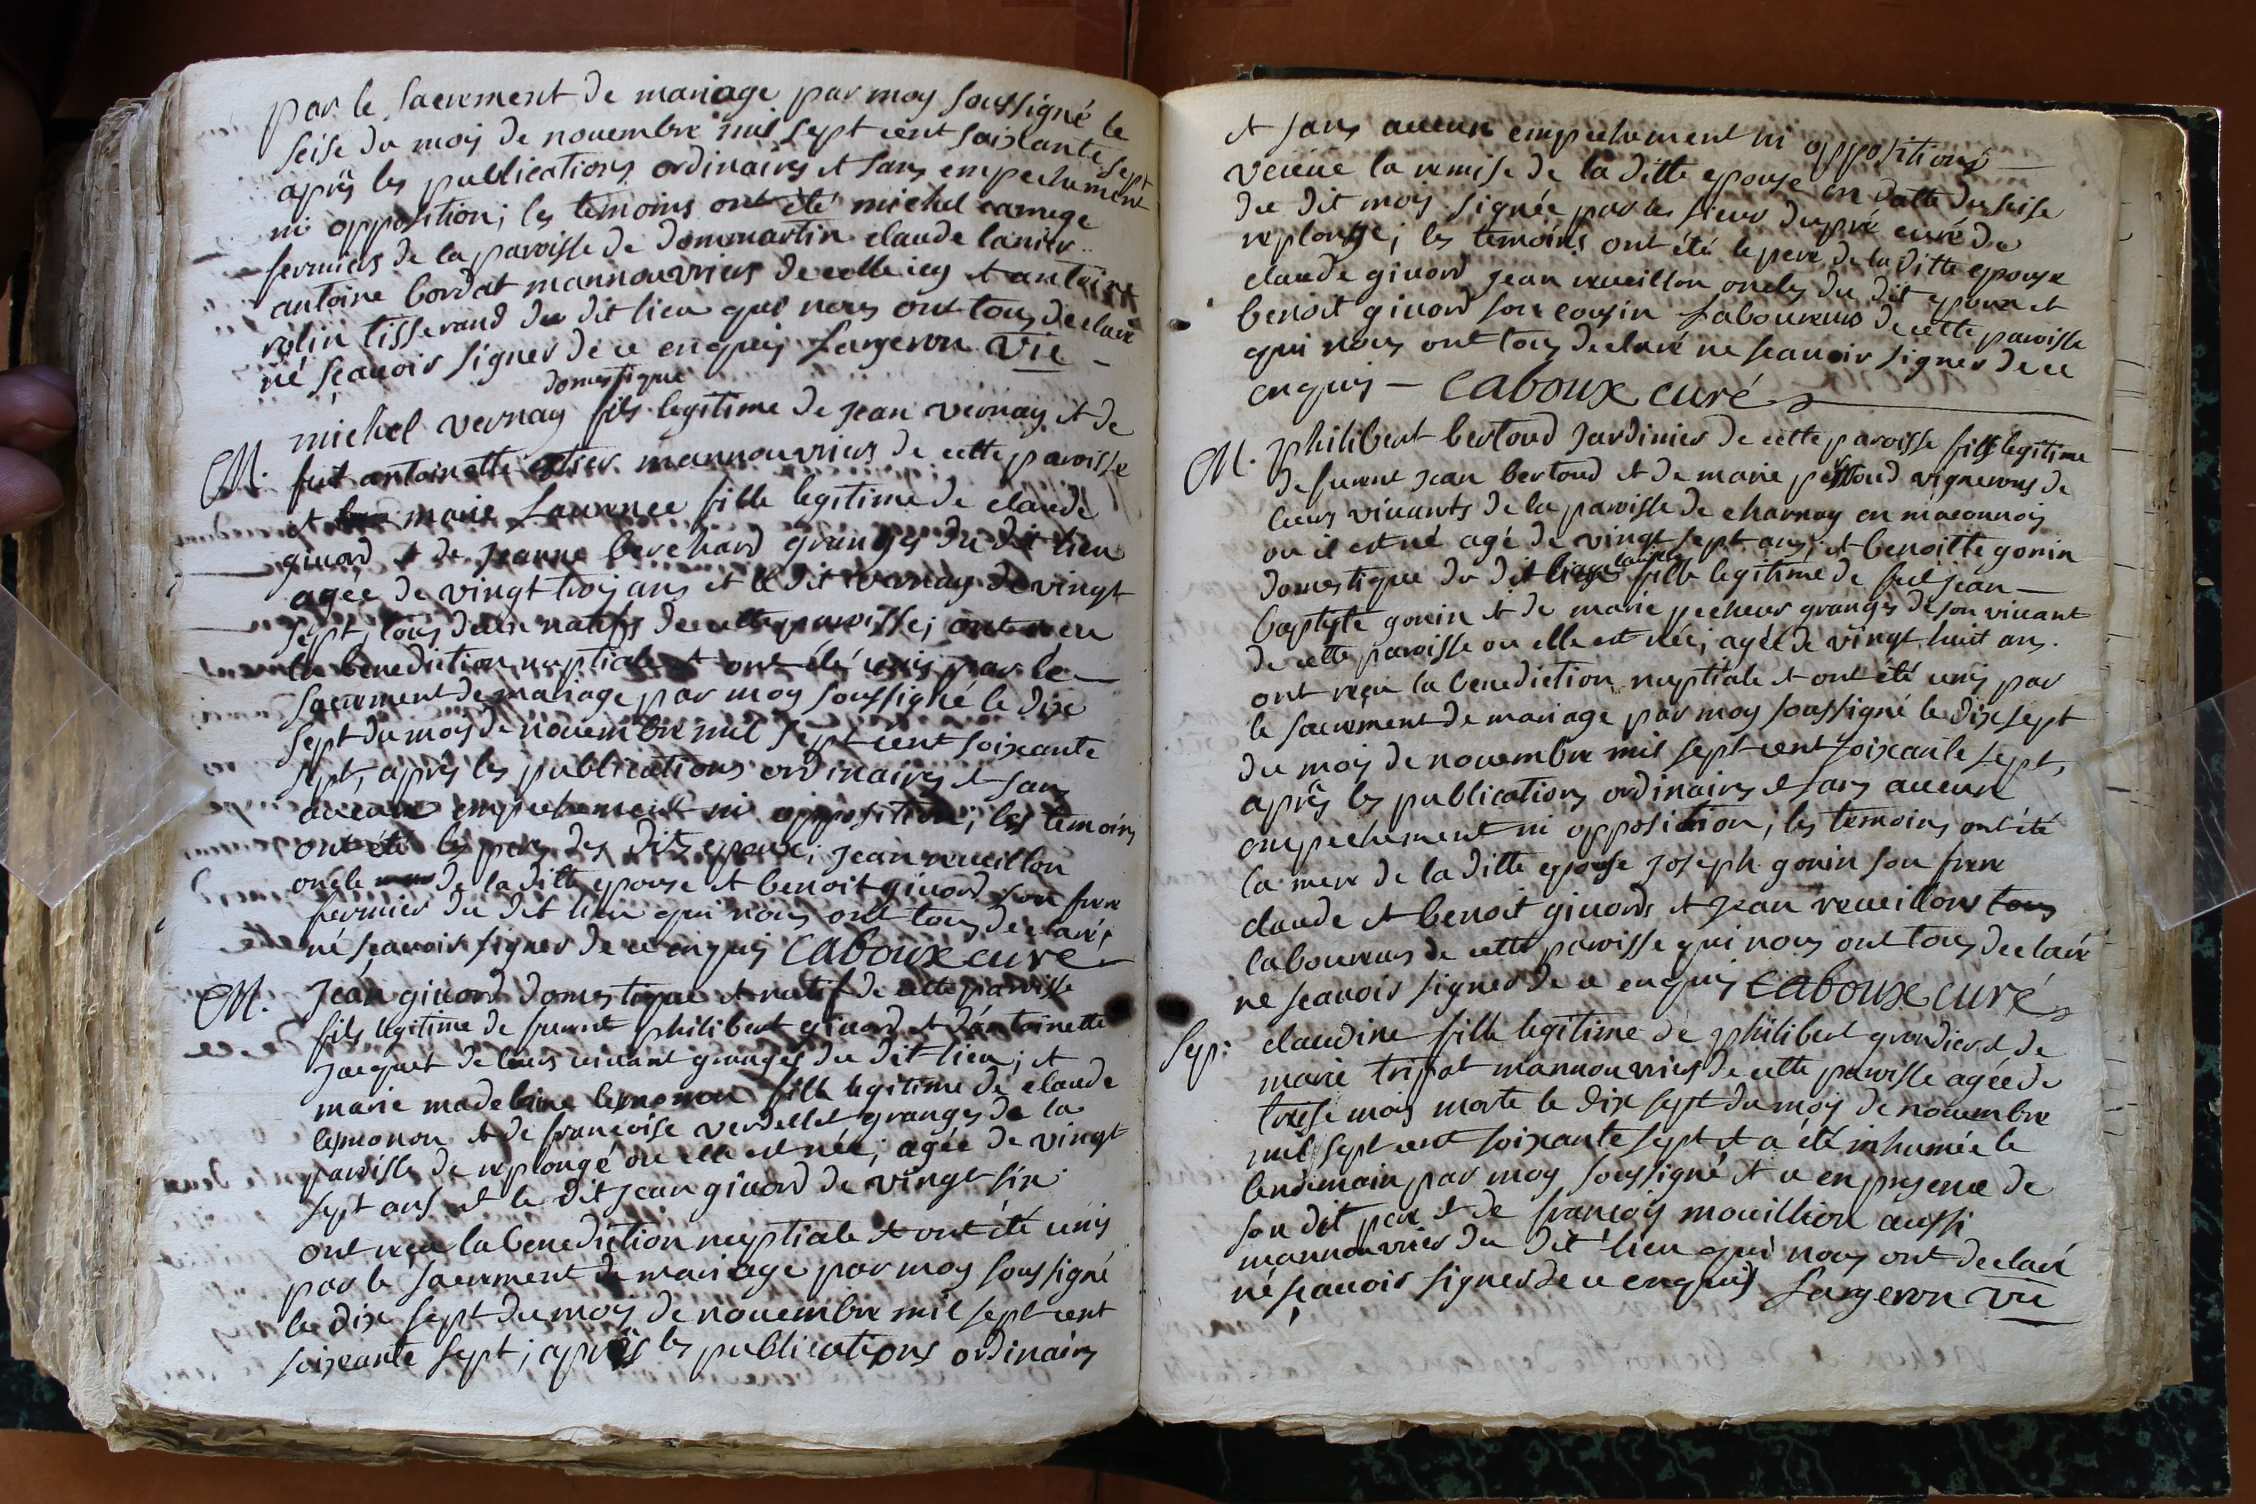 par le sacrement de mariage par moy soussigné le
seise du mois de novembre mil sept cent soixante sept
aprês les publications ordinaires et sans empechement
ni opposition; les temoins ont été michel
fermiers de la paroisse de dommartin claude lanier
antoine bordat mannouvriers de celle icy et antoine
rolin tisserand du dit lieu qui nous ont tous declaré
né sçavoir signer de ce enquis Largeron vic
domestique
M. michel vernay fils legitime de jean vernay et de
fuë antoinette mannouvriers de cette paroisse
et marie Laurence fille legitime de claude
givord et de jeanne berchard granges du dit lieu
agée de vingt trois ans et le dit vernay de vingt
sept, tous deux natifs de cette paroisse; ont reçu
la benediction nuptiale et ont été unis par le
sacrement de mariage par moy soussigné le dix
sept du mois de novembre mil sept cent soixante
sept, aprês les publications ordinaires et sans
aucun empechement ni opposition; les temoins
ont été les peres des dits epoux; jean reveillon
oncle de la ditte epouse et benoit givord son frere
fermier du dit lieu qui nous ont tous declaré
né sçavoir signer de ce enquis Caboux curé
M. Jean givord domestique et natif de cette paroisse
fils legitime de furent philibert givord et d'antoinette
jacquet de leurs vivant granges du dit lieu; et
marie madelaine lesmonon fille legitime de claude
lesmonon et de françoise verdellet granges de la
paroisse de replonge ou elle est née; agée de vingt
sept ans et le dit jean givord de vingt six
ont reçu la benediction nuptiale et ont été unis
par le sacrement de mariage par moy soussigné
le dix sept du mois de novembre mil sept cent
soixante sept; aprês les publications ordinaires
et sans aucun empechement ni oppositions
veüe la remise de la ditte epouse en datte du seise
du dit mois signée par le sieur dupré curé de
replonge; les temoins ont été le pere de la ditte epouse
claude givord jean reveillon oncles du dit epoux et
benoit givord son cousin laboureurs de cette paroisse
qui nous ont tous declaré ne sçavoir signer de ce
enquis - Caboux curé
M. philibert bertoud jardinier de cette paroisse fils legitime
de furent jean bertoud et de marie vignerons de
leurs vivants de la paroisse de charnay en maconnois
ou il est né agé de vingt sept ans; et benoitte gonin
domestique du dit fille legitime de fuë jean
baptiste gonin et de marie pecheur granges de son vivant
de cette paroisse ou elle est née; agée de vingt huit ans.
ont reçu la benediction nuptiale et ont été unis par
le sacrement de mariage par moy soussigné le dix sept
du mois de novembre mil sept cent soixante sept,
aprês les publications ordinaires et sans aucun
empechement ni opposition; les temoins ont été
la mere de la ditte epouse joseph gonin son frere
claude et benoit givords et jean reveillons tous
laboureurs de cette paroisse qui nous ont tous declaré
ne sçavoir signer de ce enquis Caboux curé
Sep: claudine fille legitime de philibert grandier et de
marie tripot mannouvriers de cette paroisse agée de
treise mois morte le dix sept du mois de novembre
mil sept cent soixante sept et a été inhumée le
lendemain par moy soussigné et ce en presence de
son dit pere et de françois mouillon aussi
mannouvrier du dit lieu qui nous ont declaré
né sçavoir signer de ce enquis Largeron vic